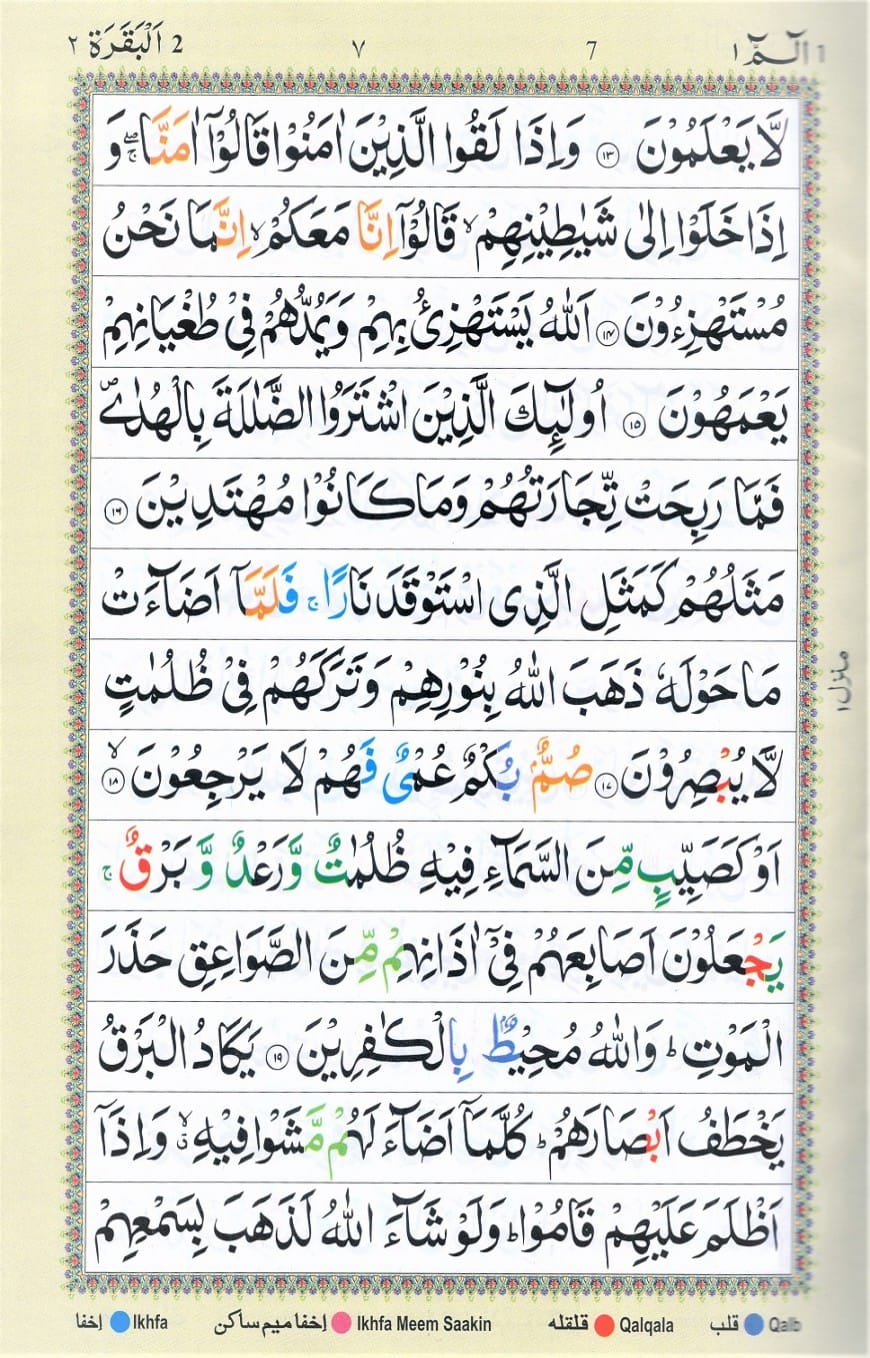 الٓمّٓ ١ 1 7 ٧ 2 اَلْبَقَرَة ٢
لَّا يَعْلَمُوْنَ ۝١٣ وَاِذَا لَقُوا الَّذِيْنَ اٰمَنُوْا قَالُوْٓا اٰمَنَّا ۖۚ وَ
اِذَا خَلَوْا اِلٰى شَيٰطِيْنِهِمْ ۙ قَالُوْٓا اِنَّا مَعَكُمْ ۙ اِنَّمَا نَحْنُ
مُسْتَهْزِءُوْنَ ۝١٤ اَللّٰهُ يَسْتَهْزِئُ بِهِمْ وَيَمُدُّهُمْ فِيْ طُغْيَانِهِمْ
يَعْمَهُوْنَ ۝١٥ اُولٰٓئِكَ الَّذِيْنَ اشْتَرَوُا الضَّلٰلَةَ بِالْهُدٰى ۪
فَمَا رَبِحَتْ تِّجَارَتُهُمْ وَمَا كَانُوْا مُهْتَدِيْنَ ۝١٦
مَثَلُهُمْ كَمَثَلِ الَّذِى اسْتَوْقَدَ نَارًا ۚ فَلَمَّآ اَضَآءَتْ
مَا حَوْلَهٗ ذَهَبَ اللّٰهُ بِنُوْرِهِمْ وَتَرَكَهُمْ فِيْ ظُلُمٰتٍ
لَّا يُبْصِرُوْنَ ۝١٧ صُمٌّۢ بُكْمٌ عُمْىٌ فَهُمْ لَا يَرْجِعُوْنَ ۝١٨ ۙ
اَوْ كَصَيِّبٍ مِّنَ السَّمَآءِ فِيْهِ ظُلُمٰتٌ وَّرَعْدٌ وَّبَرْقٌ ۚ
يَجْعَلُوْنَ اَصَابِعَهُمْ فِيْٓ اٰذَانِهِمْ مِّنَ الصَّوَاعِقِ حَذَرَ
الْمَوْتِ ؕ وَاللّٰهُ مُحِيْطٌۢ بِالْكٰفِرِيْنَ ۝١٩ يَكَادُ الْبَرْقُ
يَخْطَفُ اَبْصَارَهُمْ ؕ كُلَّمَآ اَضَآءَ لَهُمْ مَّشَوْا فِيْهِ ۙۗ وَاِذَآ
اَظْلَمَ عَلَيْهِمْ قَامُوْا ؕ وَلَوْ شَآءَ اللّٰهُ لَذَهَبَ بِسَمْعِهِمْ
منزل ١
اخفا Ikhfa اخفا ميم ساكن Ikhfa Meem Saakin قلقله Qalqala قلب Qalb